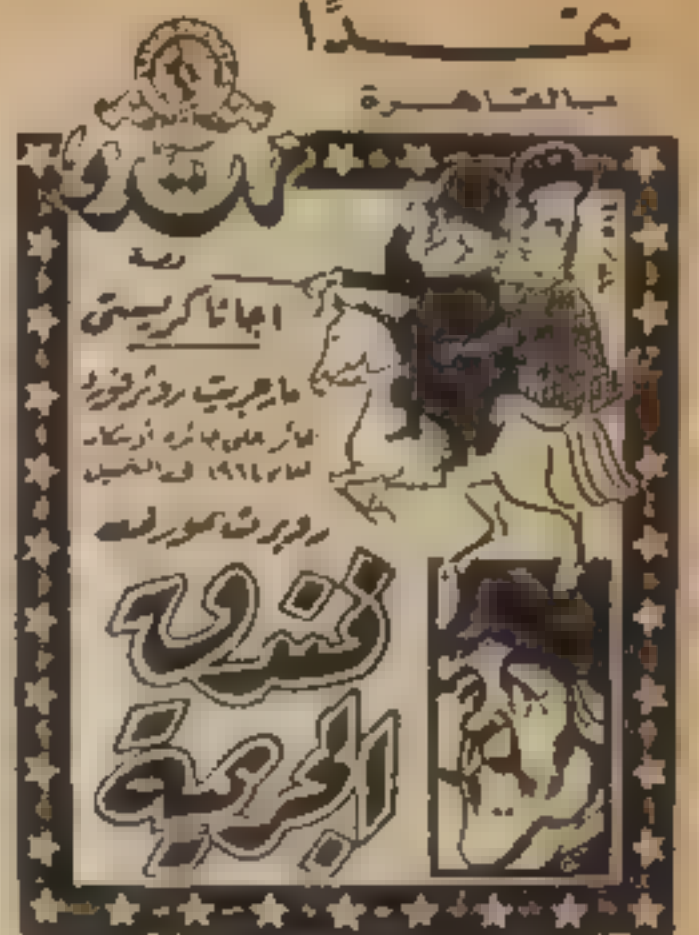 غدًا
بالقاهرة
مترو
قصة
اجاثا كريستي
مارجريت روثرفورد
حائز على جائزة أوسكار
لعام ١٩٦٤ في التمثيل
روبرت مورلى
فندق
الجريمة